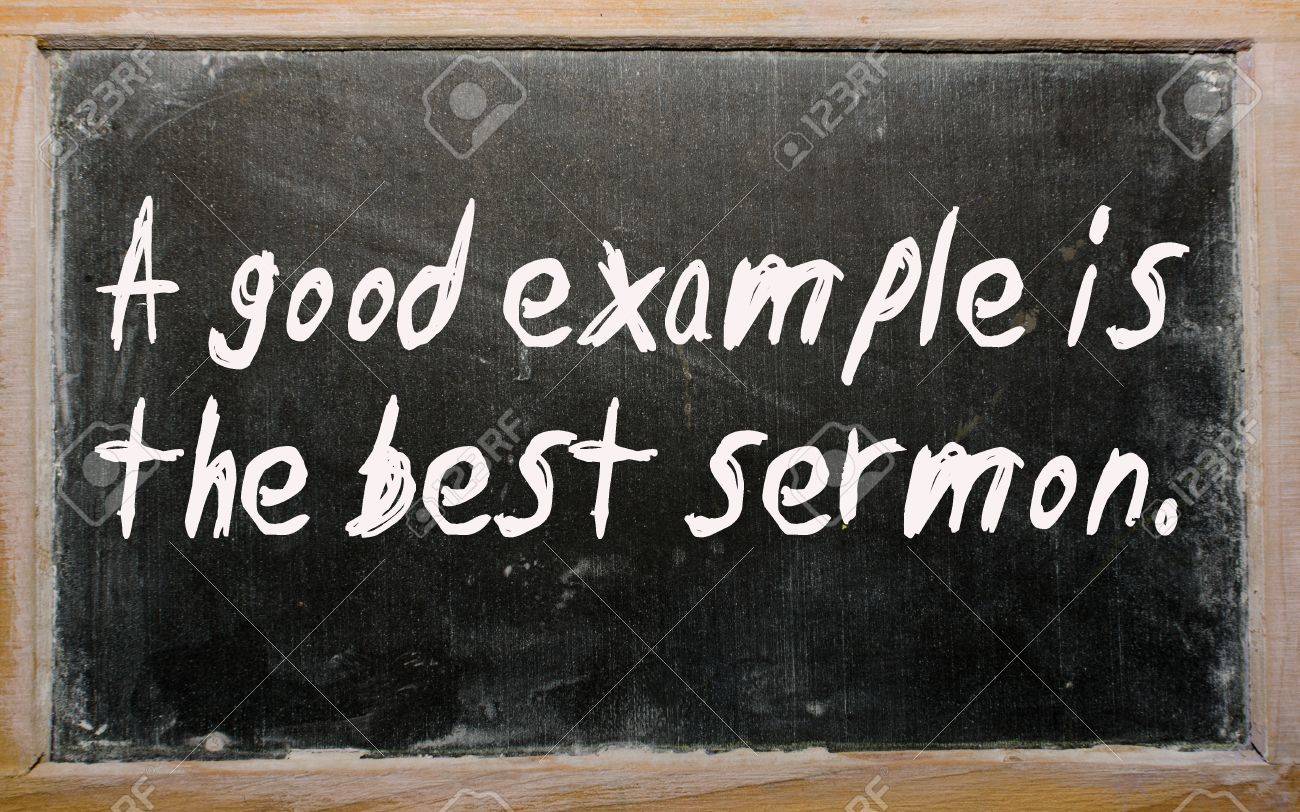 A good example is
the best sermon.
123RF
123RF
123RF
123RF
123RF
123RF